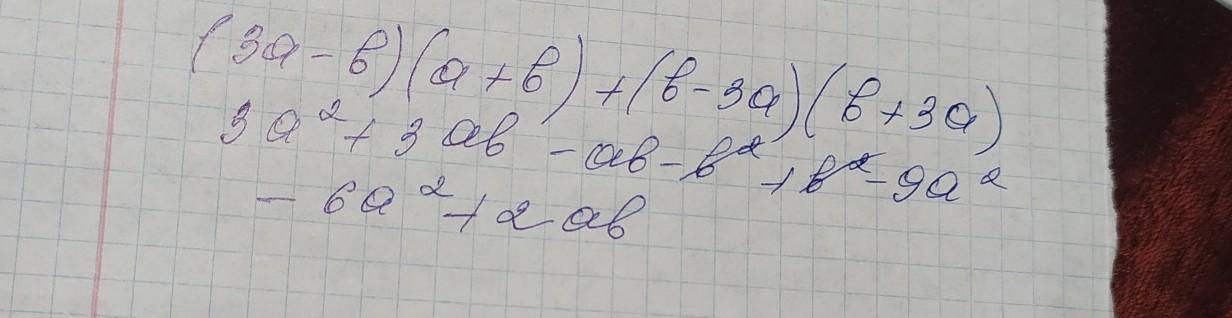 (3a-b)(a+b)+(b-3a)(b+3a)
3a²+3ab-ab-b²+b²-9a²
-6a²+2ab